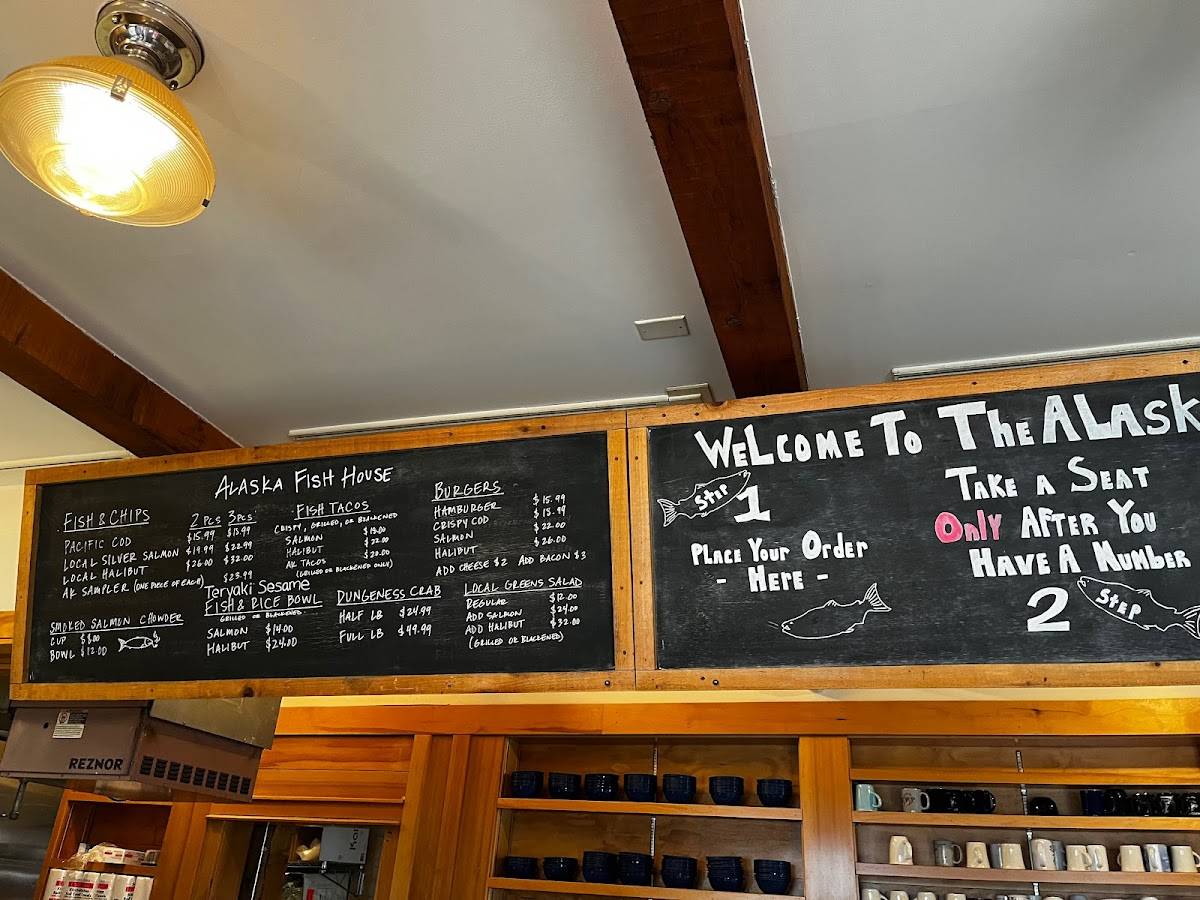 ALASKA FISH HOUSE
FISH & CHIPS 2 PCS 3 PCS
PACIFIC COD $15.99 $19.99
LOCAL SILVER SALMON $19.99 $22.99
LOCAL HALIBUT $26.00 $32.00
AK SAMPLER (ONE PIECE OF EACH) $23.99
SMOKED SALMON CHOWDER
CUP $8.00
BOWL $12.00
FISH TACOS
CRISPY, GRILLED, OR BLACKENED
SALMON $19.00
HALIBUT $22.00
AK TACOS $20.00
(GRILLED OR BLACKENED ONLY)
Teryaki Sesame
FISH & RICE BOWL
GRILLED OR BLACKENED
SALMON $14.00
HALIBUT $24.00
DUNGENESS CRAB
HALF LB $24.99
FULL LB $49.99
BURGERS
HAMBURGER $15.99
CRISPY COD $15.99
SALMON $22.00
HALIBUT $26.00
ADD CHEESE $2 ADD BACON $3
LOCAL GREENS SALAD
REGULAR $12.00
ADD SALMON $24.00
ADD HALIBUT $32.00
(GRILLED OR BLACKENED)
WELCOME TO THE ALASK
STEP
1
PLACE YOUR ORDER
- HERE -
TAKE A SEAT
ONLY AFTER YOU
HAVE A NUMBER
2
STEP
REZNOR